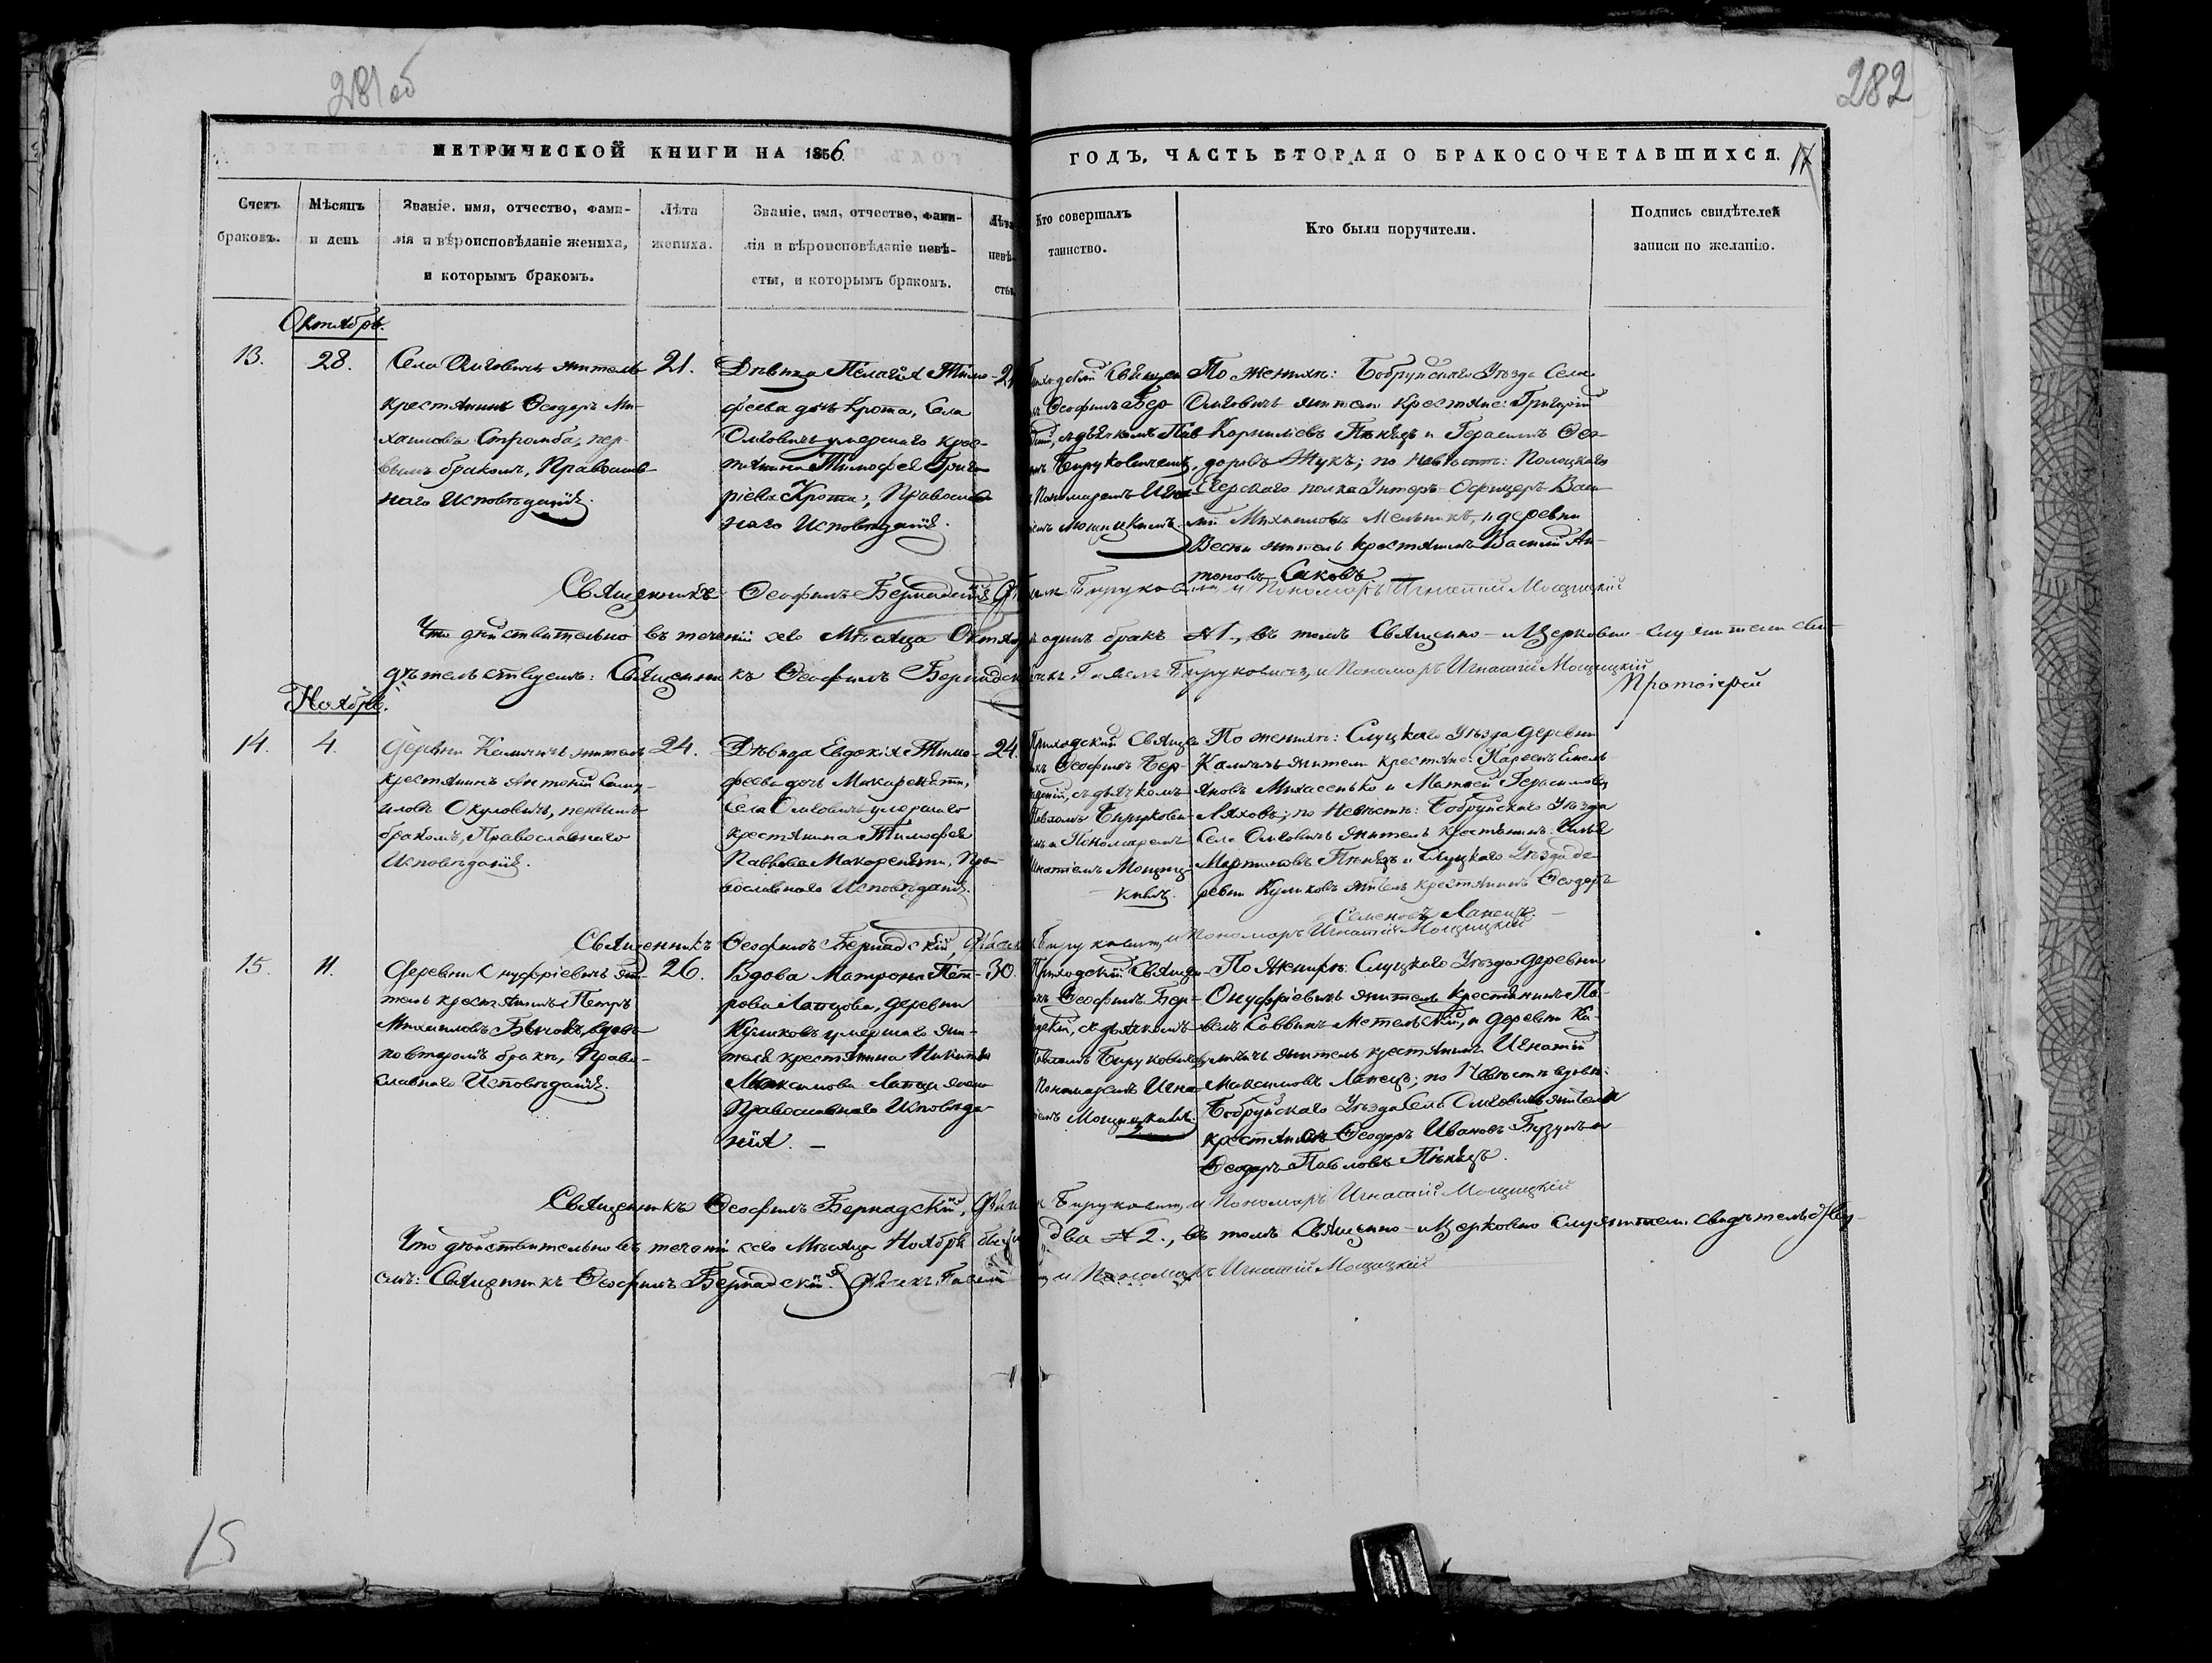 281 об
282
МЕТРИЧЕСКОЙ КНИГИ НА 1856.
ГОДЪ, ЧАСТЬ ВТОРАЯ О БРАКОСОЧЕТАВШИХСЯ. 17
Счетъ
браковъ.
Мѣсяцъ
и день
Званіе, имя, отчество, фами-
лія и вѣроисповѣданіе жениха,
и которымъ бракомъ.
Лѣта
жениха.
Званіе, имя, отчество, фами-
лія и вѣроисповѣданіе невѣ-
сты, и которымъ бракомъ.
Лѣта
невѣ-
сты
Кто совершалъ
таинство.
Кто были поручители.
Подпись свидѣтелей
записи по желанію.
Октябрь.
13.
28.
Села Омговичъ житель
крестьянинъ Ѳеодоръ Ми-
хаиловъ Стромба, пер-
вымъ бракомъ, Православ-
наго Исповѣданія.
21.
Дѣвица Пелагія Тимо-
феева дочь Крота, Села
Омговичъ умершаго крес-
тьянина Тимофея Григо
ріева Крота, Православ
наго Исповѣданія.
Приходскій Священ
Ѳеофилъ Бер
съ дьячкомъ Пав
Бируковичемъ,
Пономаремъ Игна
Мощицкимъ.
По женихѣ: Бобруйскаго Уѣзда Села
Омговичъ жители крестьяне: Григорій
Корниліевъ Пѣнязь и Герасимъ Ѳео-
доровъ Жукъ; по невѣстѣ: Полоцкаго
Егерскаго полка Унтеръ-Офицеръ Васи
лій Михаиловъ Мельникъ, и деревни
Весни житель крестьянинъ Василій Ан-
тоновъ Саковъ
Священникъ Ѳеофилъ Бернадскій Бируковичъ и Пономарь Игнатій Мощицкій
Что дѣйствительно въ теченіи сего Мѣсяца Октяб одинъ бракъ №1., въ томъ Священно-и Церковно-служители сви-
дѣтельствуемъ: Священникъ Ѳеофилъ Бернадск Павелъ Бируковичъ, и Пономарь Игнатій Мощицкій
Протоіерей
Ноябрь.
14.
4.
Деревни Каличичъ житель
крестьянинъ Антоній
Окуловичъ, первымъ
бракомъ, Православнаго
Исповѣданія.
24.
Дѣвица Евдокія Тимо-
феева дочь Макаренята,
Села Омговичъ умершаго
крестьянина Тимофея
Павлова Макареняти, Пра-
вославнаго Исповѣданія.
24.
Приходскій Священ
Ѳеофилъ Бер-
съ дьячкомъ
Павломъ Бирукови-
и Пономаремъ
Игнатіемъ Мощиц-
кимъ.
По женихѣ: Слуцкаго Уѣзда деревни
жители крестьяне: Емель
яновъ Михасенько и Матвей Герасимовъ
Ляховъ; по невѣстѣ: Бобруйскаго Уѣзда
Села Омговичъ житель крестьянинъ
Мартиновъ Пѣнязь и Слуцкаго Уѣзда де
ревни Куликовъ житель крестьянинъ Ѳеодоръ
Семеновъ Лапецъ. —
Священникъ Ѳеофилъ Бернадскій, Бируковичъ, и Пономарь Игнатій Мощицкій
15.
11.
Деревни Онуфріевичъ жи-
тель крестьянинъ Петръ
Михаиловъ вдовъ
по второмъ бракѣ, Право-
славнаго Исповѣданія.
26.
Вдова Матрона Пет-
рова Лапцова, деревни
Куликовъ умершаго жи-
теля крестьянина Никиты
Максимова Лапца жена
Православнаго Исповѣда-
нія. —
30.
Приходскій Священ-
Ѳеофилъ Бер-
съ дьячкомъ
Павломъ Бируковичемъ
Пономаремъ Игна-
Мощицкимъ.
По Женихѣ: Слуцкаго Уѣзда деревни
Онуфріевичъ житель крестьянинъ Па-
велъ Саввинъ Метельскій, и деревни Ка-
личичъ житель крестьянинъ Игнатій
Максимовъ Лапецъ; по Невѣстѣ вдовѣ:
Бобруйскаго Уѣзда Села Омговичъ жители
крестьяне Ѳеодоръ Ивановъ и
Ѳеодоръ Павловъ Пѣнязь.
Священникъ Ѳеофилъ Бернадскій, Бируковичъ, и Пономарь Игнатій Мощицкій
Что дѣйствительно въ теченіи сего Мѣсяца Ноября два №2., въ томъ Священно-и Церковно служители свидѣтельству-
емъ: Священникъ Ѳеофилъ Бернадскій. Дьякъ Павелъ и Пономарь Игнатій Мощицкій
15